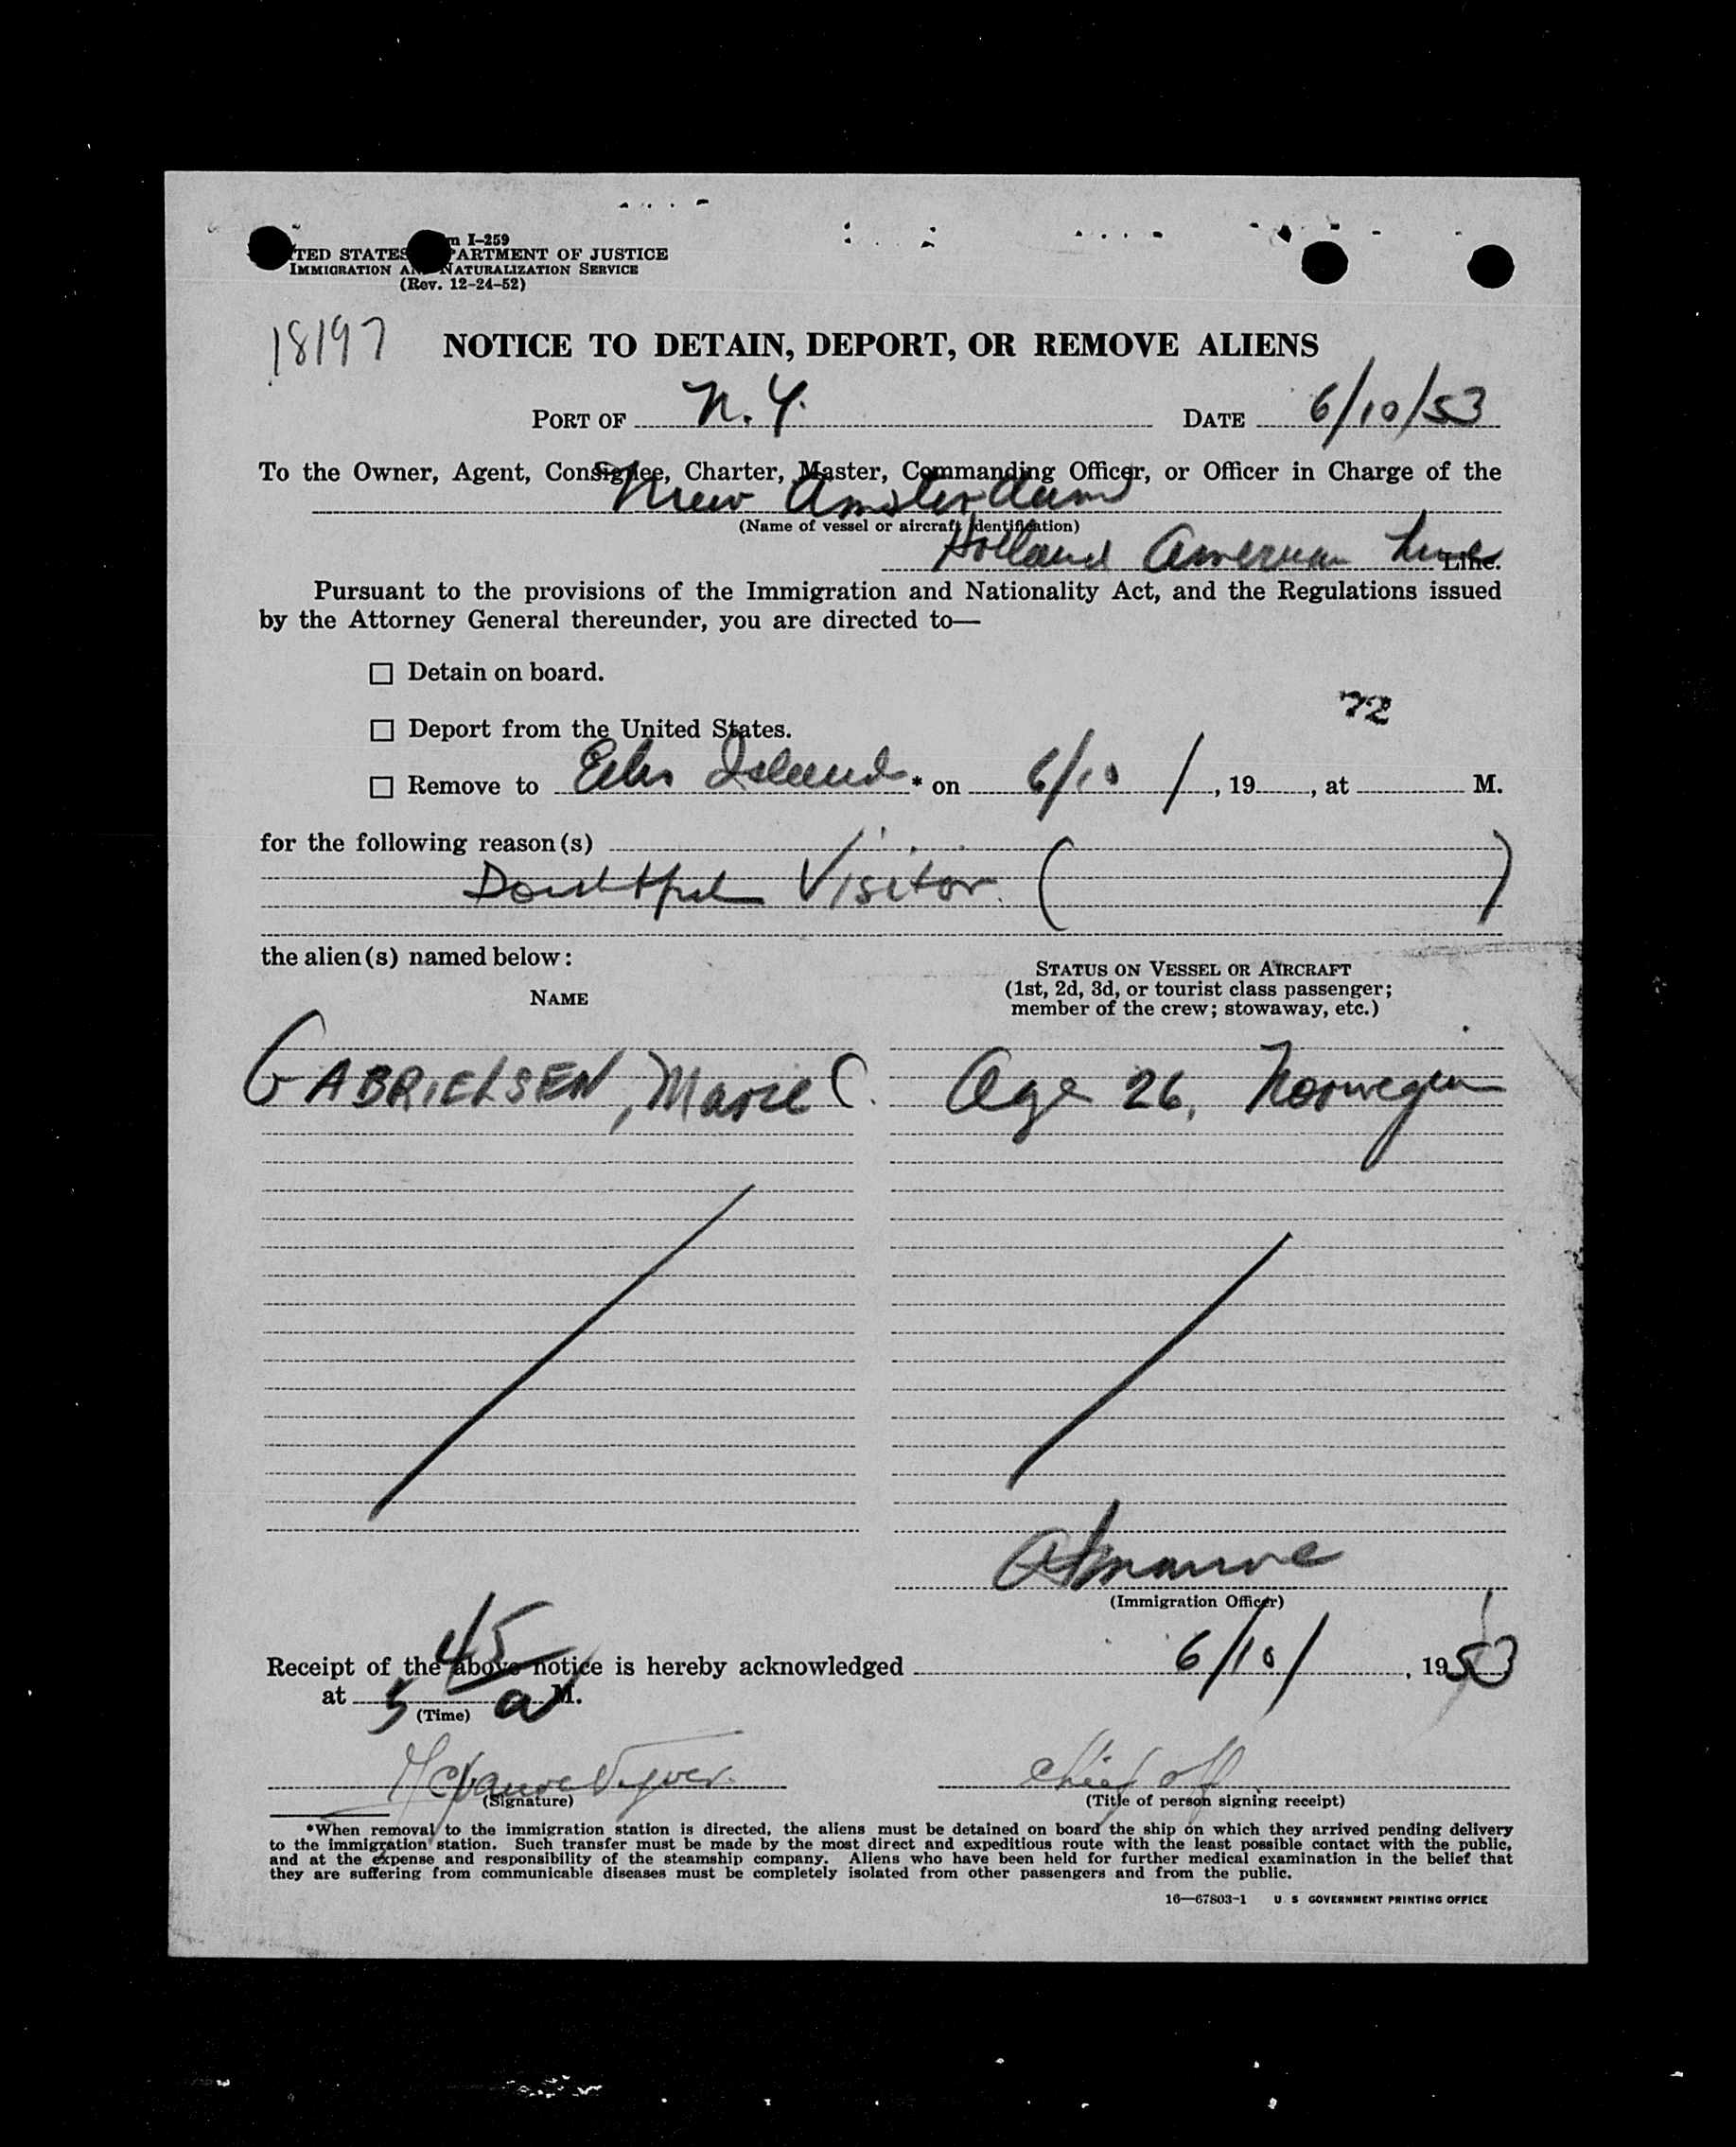 m I-259
TED STATES PARTMENT OF JUSTICE
IMMIGRATION AN NATURALIZATION SERVICE
(Rev. 12-24-52)
18197
NOTICE TO DETAIN, DEPORT, OR REMOVE ALIENS
PORT OF N.Y. DATE 6/10/53
To the Owner, Agent, Consignee, Charter, Master, Commanding Officer, or Officer in Charge of the
New Amsterdam
(Name of vessel or aircraft identification)
Holland American Line Line.
Pursuant to the provisions of the Immigration and Nationality Act, and the Regulations issued
by the Attorney General thereunder, you are directed to—
☐ Detain on board.
72
☐ Deport from the United States.
☐ Remove to Ellis Island * on 6/10/, 19, at M.
for the following reason(s)
Doubtful Visitor. ( )
the alien(s) named below:
STATUS ON VESSEL OR AIRCRAFT
NAME (1st, 2d, 3d, or tourist class passenger;
member of the crew; stowaway, etc.)
GABRIELSEN, Marie C. Age 26, Norwegian
(Immigration Officer)
Receipt of the above notice is hereby acknowledged 6/10/, 1953
at 5 45 a M.
(Time)
Chief off
(Signature) (Title of person signing receipt)
*When removal to the immigration station is directed, the aliens must be detained on board the ship on which they arrived pending delivery
to the immigration station. Such transfer must be made by the most direct and expeditious route with the least possible contact with the public,
and at the expense and responsibility of the steamship company. Aliens who have been held for further medical examination in the belief that
they are suffering from communicable diseases must be completely isolated from other passengers and from the public.
16—67803-1 U S GOVERNMENT PRINTING OFFICE